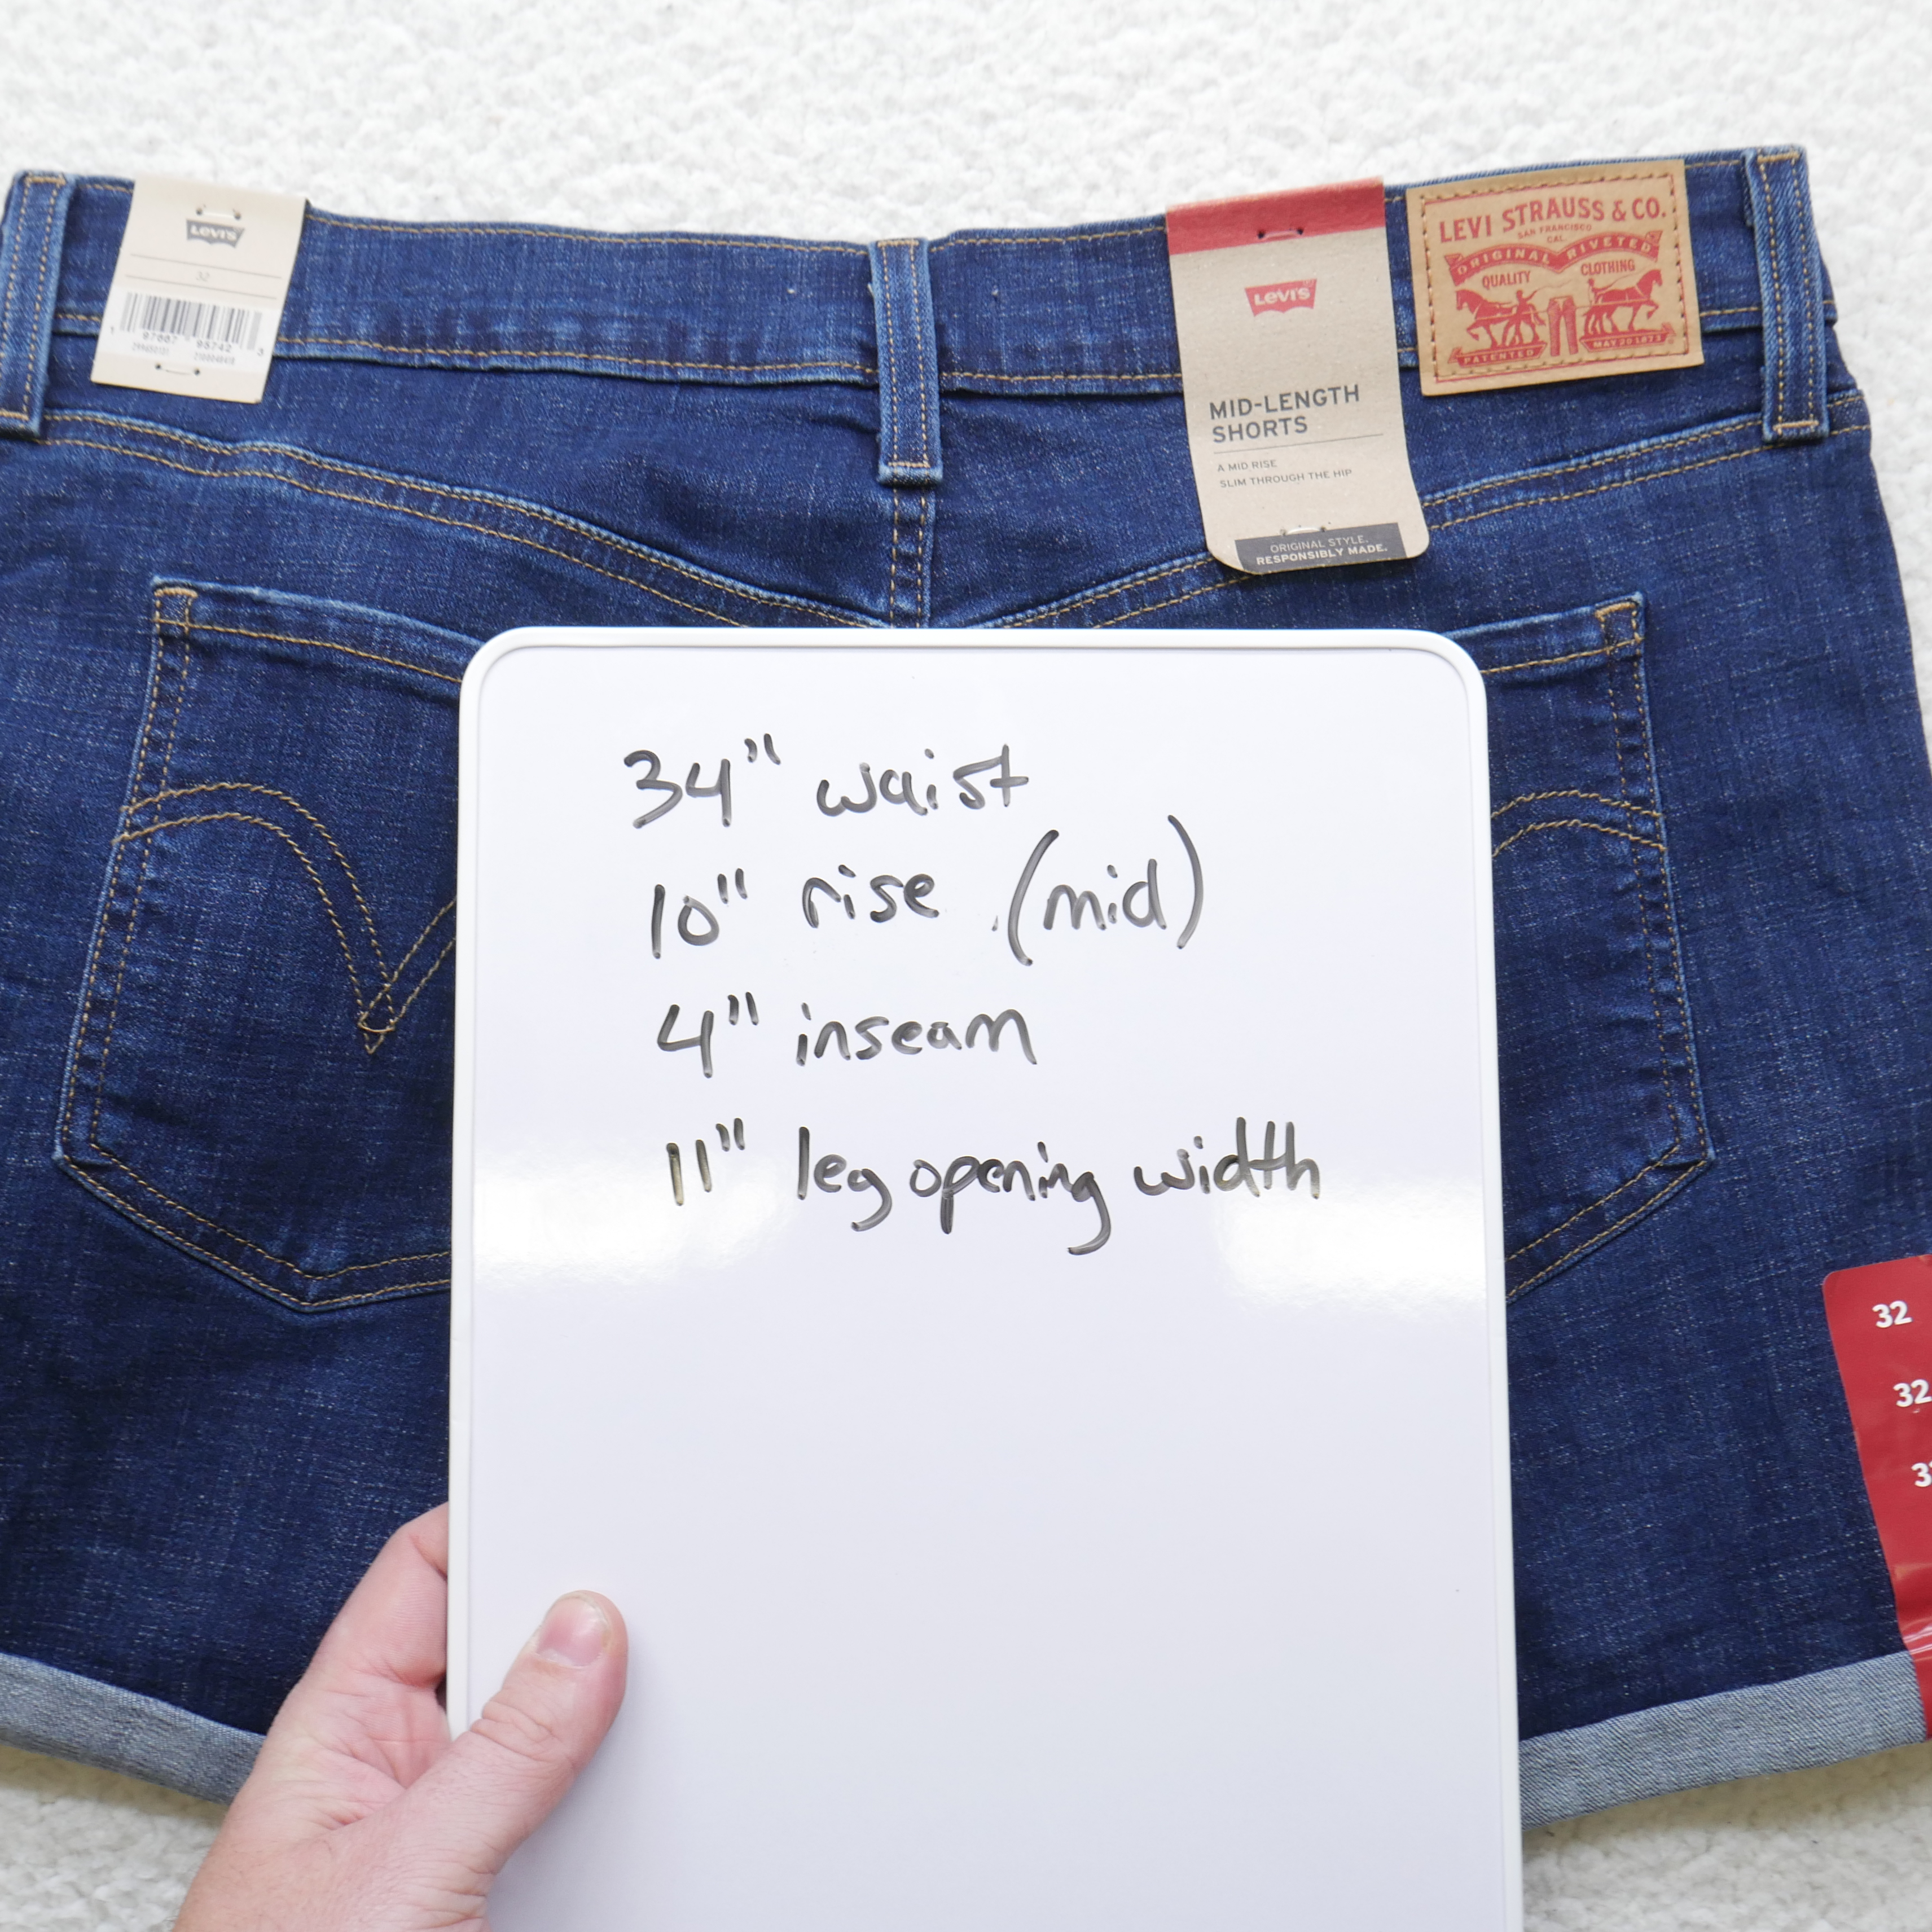 LEVI'S
32
1 97087 95742 3
LEVI'S
MID-LENGTH
SHORTS
A MID RISE
SLIM THROUGH THE HIP
ORIGINAL STYLE.
RESPONSIBLY MADE.
LEVI STRAUSS & CO.
SAN FRANCISCO
CAL.
ORIGINAL RIVETED
QUALITY CLOTHING
PATENTED MAY 20 1873
34" waist
10" rise (mid)
4" inseam
11" leg opening width
32
32